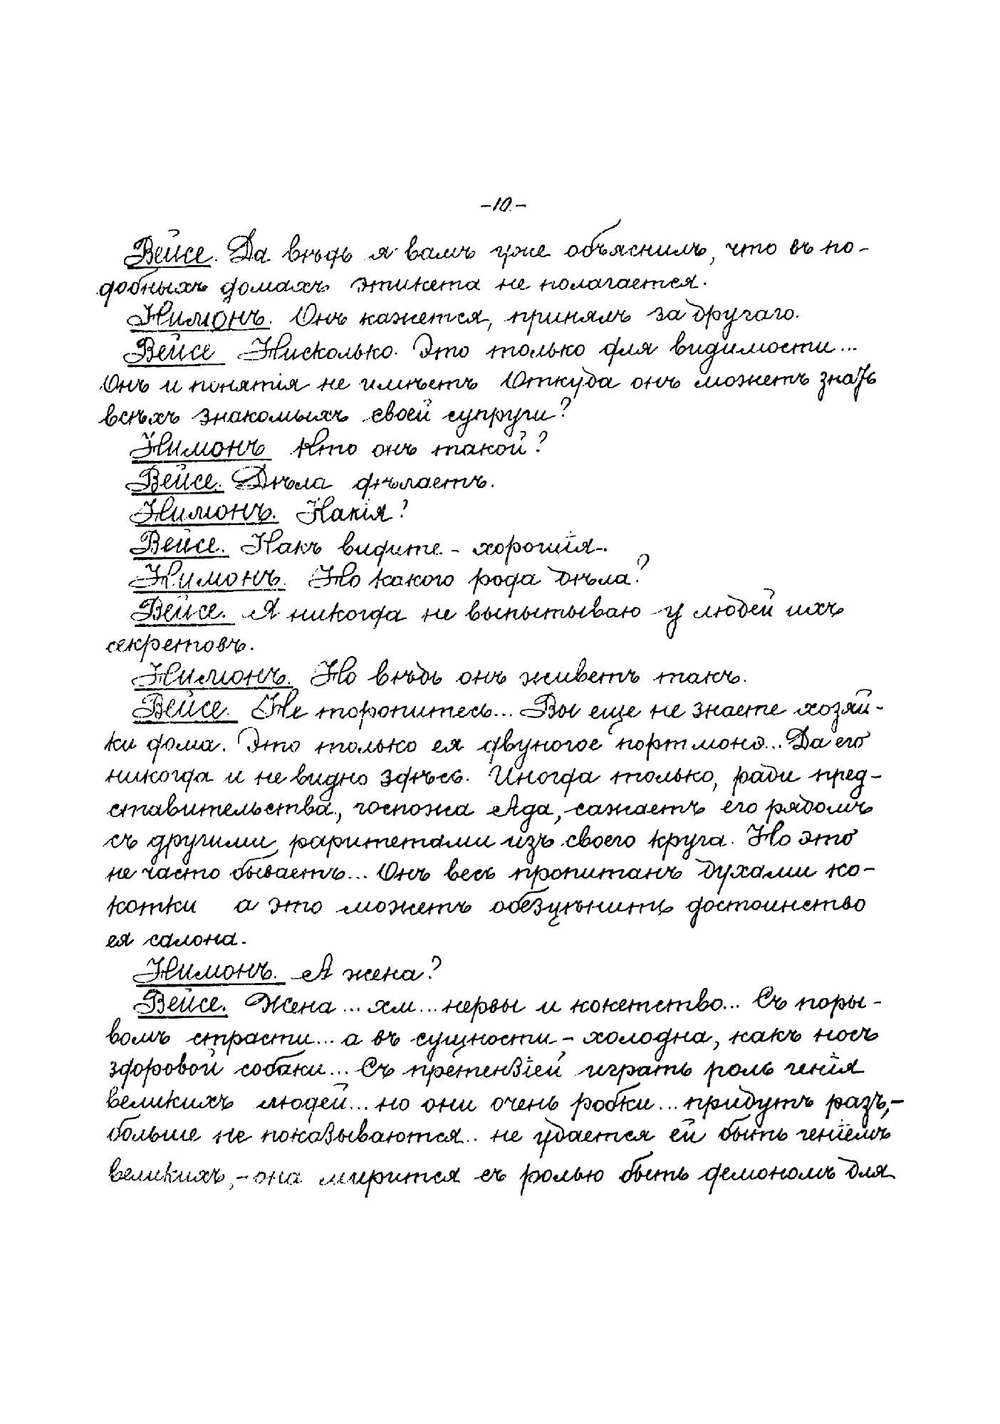 -10-
Вейсе. Да вѣдь я вамъ уже объяснилъ, что въ по-
добныхъ домахъ этикета не полагается.
Нимонъ. Онъ кажется, принялъ за другаго.
Вейсе Нисколько. Это только для видимости...
Онъ и понятія не имѣетъ Откуда онъ можетъ знать
всѣхъ знакомыхъ своей супруги?
Нимонъ Кто онъ такой?
Вейсе. Дѣла дѣлаетъ.
Нимонъ. Какія?
Вейсе. Какъ видите - хорошія.
Нимонъ. Но какого рода дѣла?
Вейсе. Я никогда не выпытываю у людей ихъ
секретовъ.
Нимонъ. Но вѣдь онъ живетъ такъ.
Вейсе. Не торопитесь... Вы еще не знаете хозяй-
ки дома. Это только ея двуногое портмонэ... Да его
никогда и не видно здѣсь. Иногда только, ради пред-
ставительства, госпожа Ада, сажаетъ его рядомъ
съ другими, раритетами изъ своего круга. Но это
не часто бываетъ... Онъ весь пропитанъ духами ко-
котки а это можетъ обезцѣнить достоинство
ея салона.
Нимонъ. А жена?
Вейсе. Жена... хм... нервы и кокетство... Съ поры-
вомъ страсти... а въ сущности - холодна, какъ носъ
здоровой собаки... Съ претензіей играть роль генія
великихъ людей... но они очень робки... придутъ разъ,-
больше не показываются.. не удается ей быть геніемъ
великихъ,- она мирится съ ролью быть демономъ для